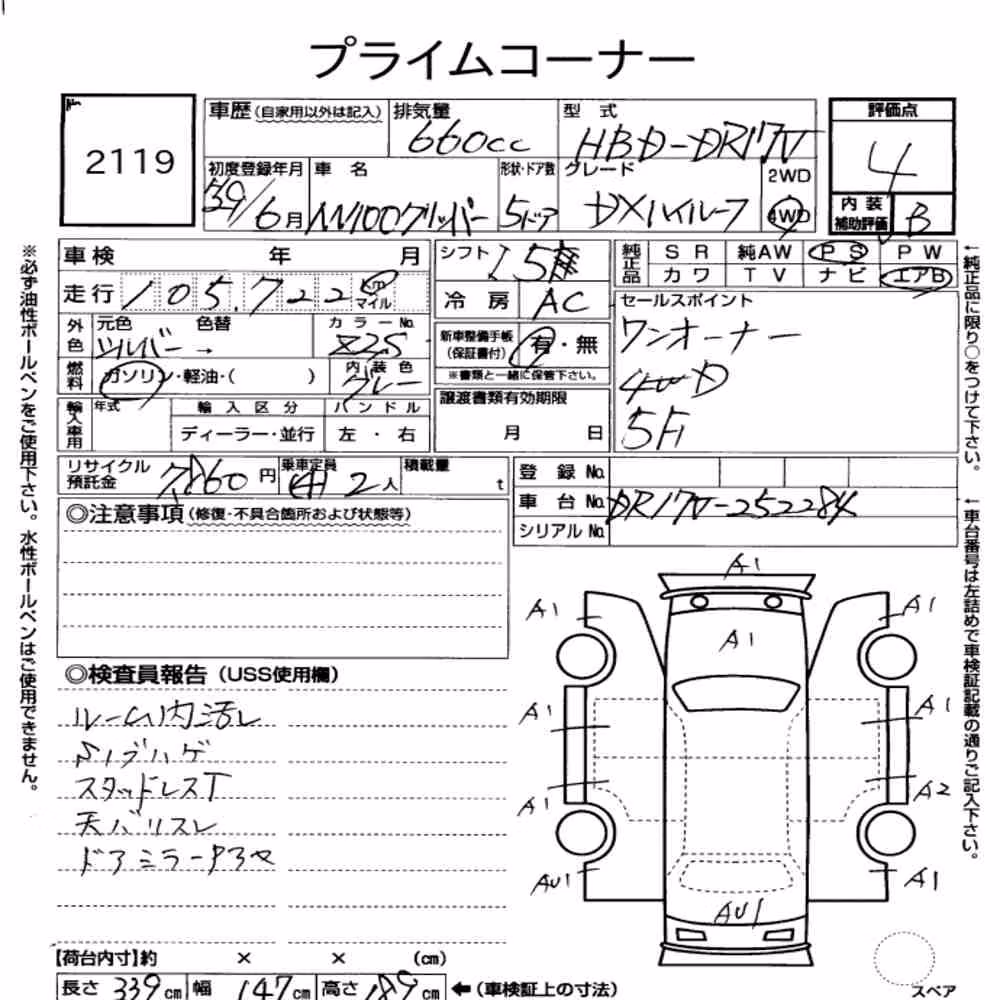 プライムコーナー
2119
車歴(自家用以外は記入)
排気量
660cc
型 式
HBD-DR17V
評価点
4
初度登録年月
6月
車 名
NV100クリッパー
形状・ドア数
5ドア
グレード
DXハイルーフ
2WD
4WD
内装
補助評価
B
車検 年 月
走行 105,722 km
マイル
シフト
I5
冷 房
AC
純正品
S R 純AW P S P W
カ ワ T V ナ ビ エアB
外色
元色 色替
シルバー→
カ ラ ー No.
Z2S
燃料
ガソリン・軽油・( )
内 装 色
グレー
新車整備手帳
(保証書付)
有・無
※書類と一緒に保管下さい。
セールスポイント
ワンオーナー
4WD
5F
輸入車用
年式
輸 入 区 分
ディーラー・並行
ハ ン ド ル
左 ・ 右
譲渡書類有効期限
月 日
リサイクル
預託金
7,860円
乗車定員
2人
積載量
t
登 録 No.
車 台 No.
DR17V-252284
シリアル No.
◎注意事項(修復・不具合箇所および状態等)
◎検査員報告(USS使用欄)
ルーム内汚レ
スタッドレスT
ドアミラー
A1
A1
A1
A1
A1
A1
A1
A2
AU1
A1
AU1
【荷台内寸】約 × × (cm)
長さ 339cm 幅 147cm 高さ 189cm
←(車検証上の寸法)
スペア
※必ず油性ボールペンをご使用下さい。水性ボールペンはご使用できません。
←純正品に限り○をつけて下さい。
←車台番号は左詰めで車検証記載の通りご記入下さい。